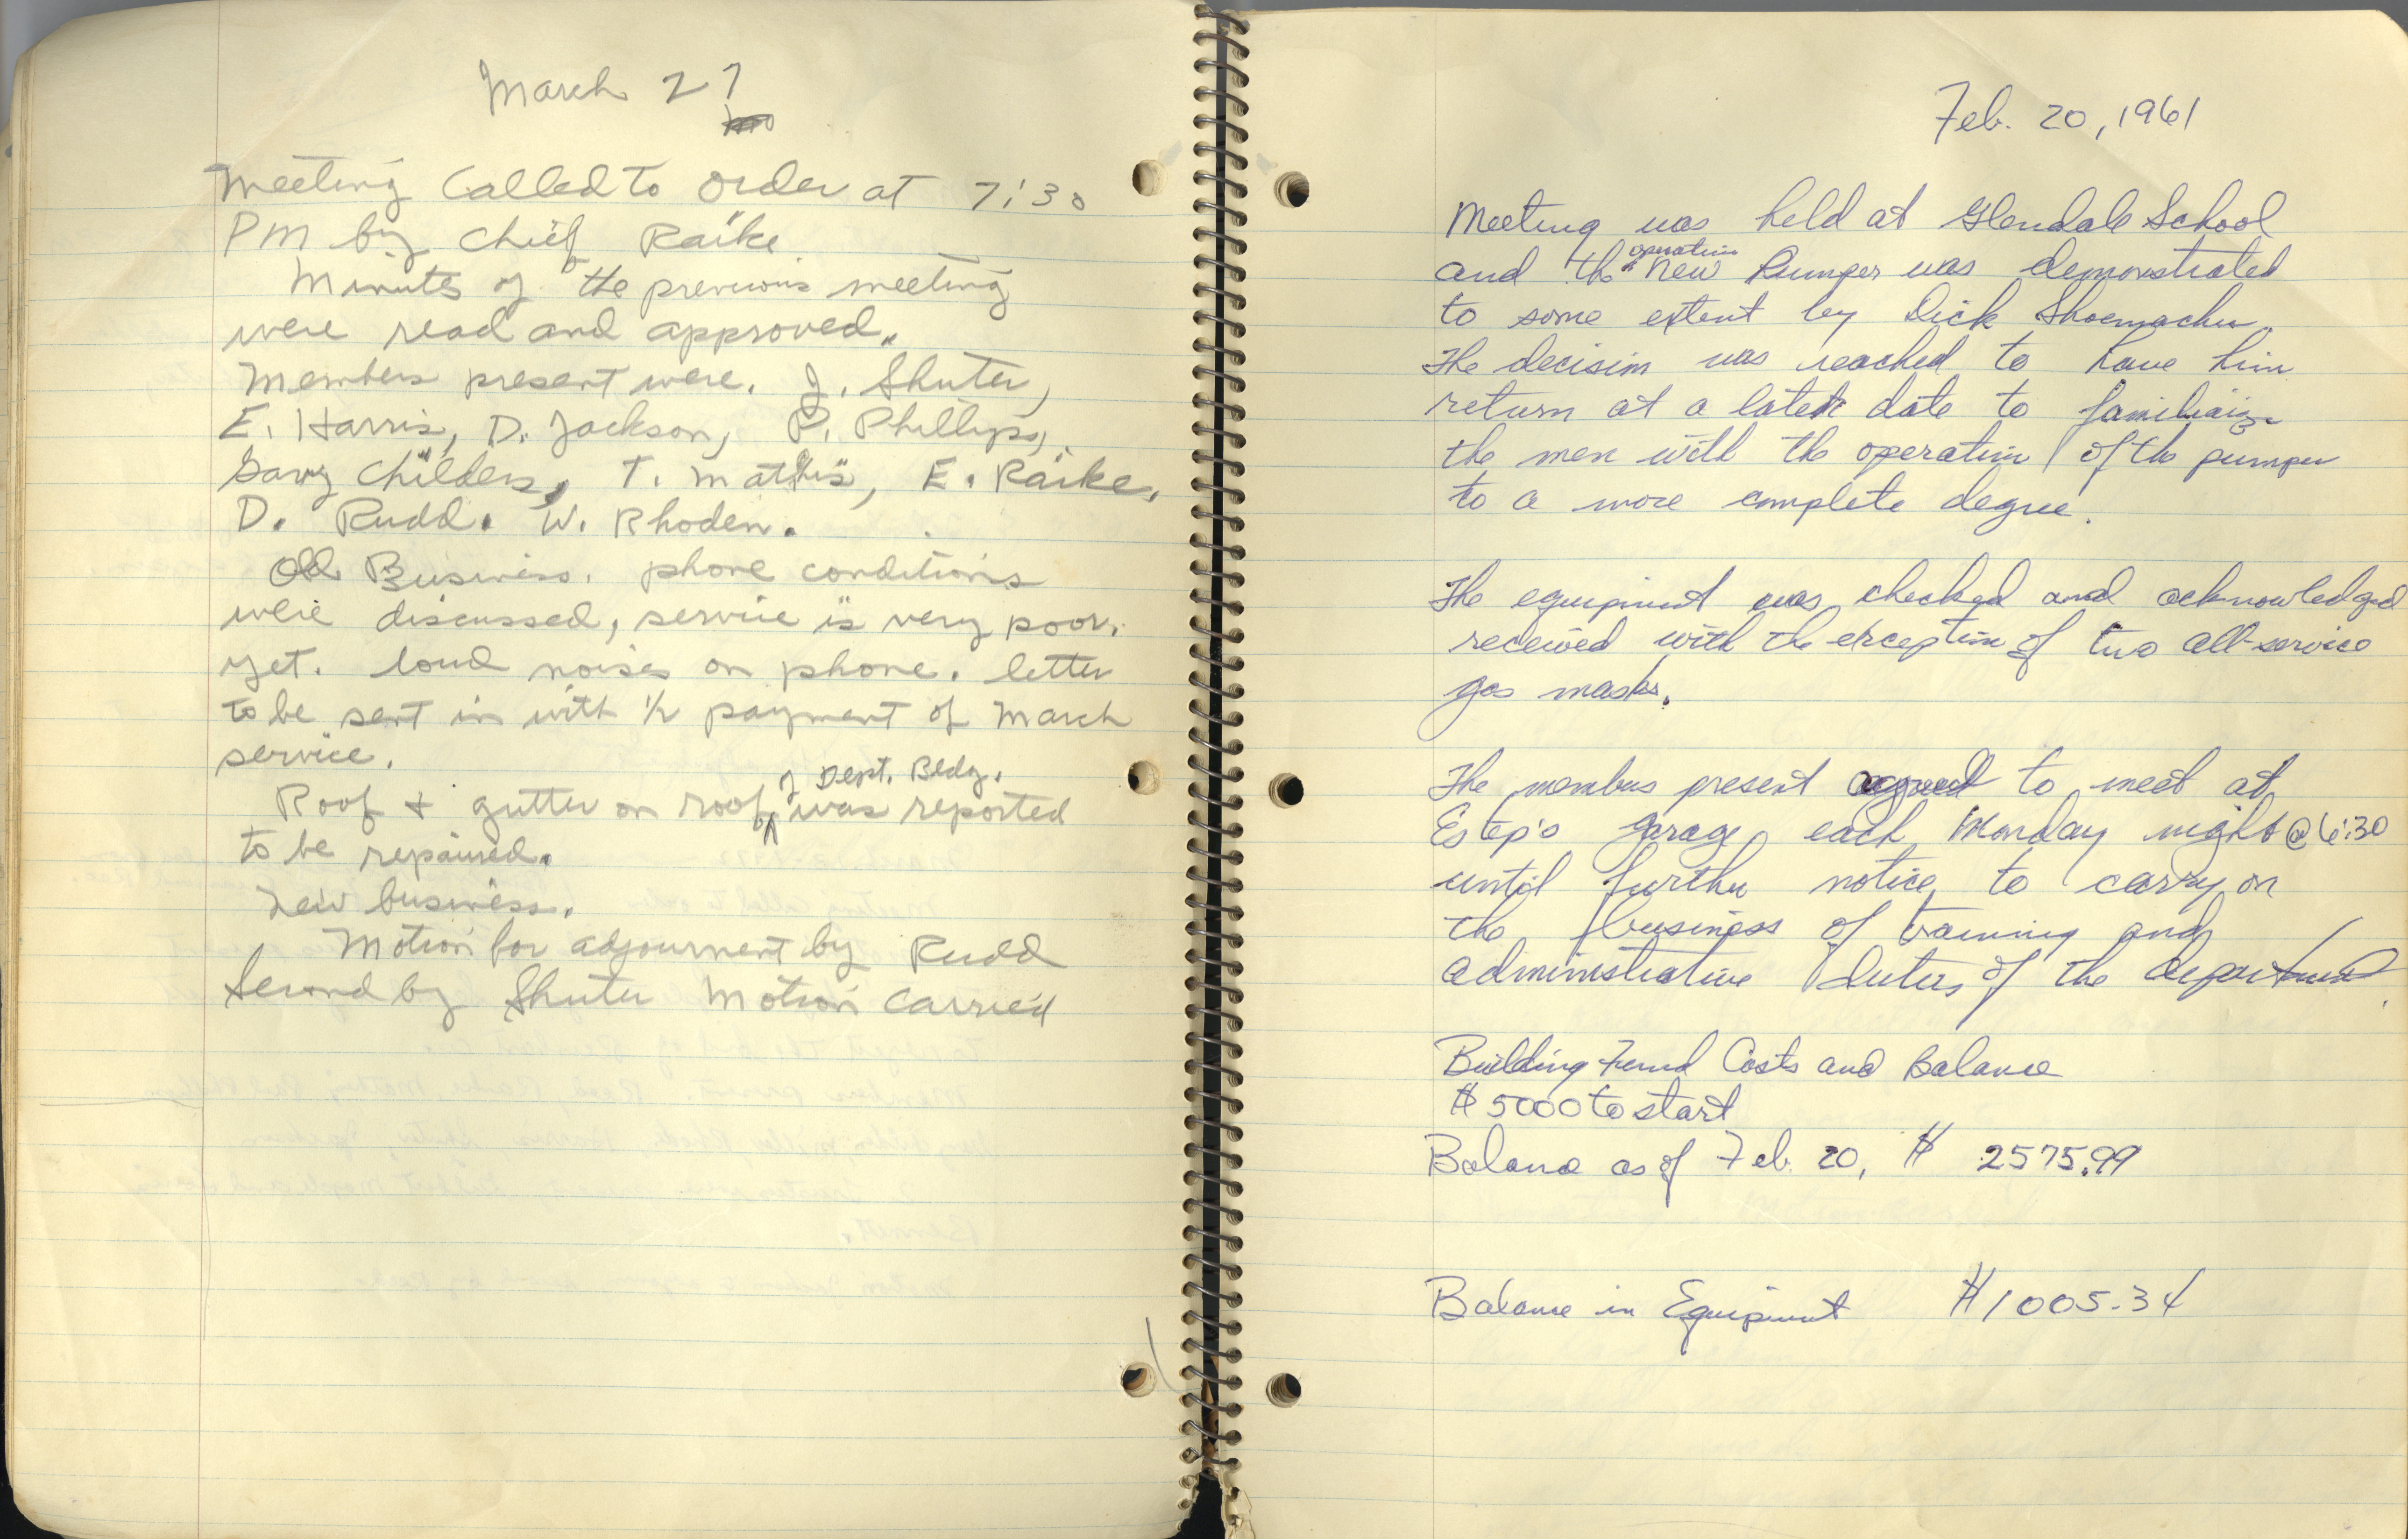 March 27
Meeting Called to order at 7:30
PM by Chief Raike
Minutes of the previous meeting
were read and approved.
Members present were. J. Shuter,
E. Harris, D. Jackson, P. Phillips,
Gary Childers, T. Mathis, E. Raike,
D. Rudd. W. Rhoden.
Old Business. phone conditions
were discussed, service is very poor.
yet. loud noises on phone. letter
to be sent in with 1/2 payment of March
service.
of Dept. Bldg.
Roof + gutter on roof was reported
to be repaired.
New business.
Motion for adjournment by Rudd
Second by Shuter Motion Carried
Feb. 20, 1961
Meeting was held at Glendale School
operation
and the new Pumper was demonstrated
to some extent by Dick Shoemacher.
The decision was reached to have him
return at a later date to familiarize
the men with the operation of the pumper
to a more complete degree.
The equipment was checked and acknowledged
received with the exception of two all-service
gas masks.
The members present agreed to meet at
Estep's garage each Monday night @ 6:30
until further notice to carry on
the business of training and
administrative duties of the department.
Building Fund Costs and Balance
$5000 to start
Balance as of Feb. 20, $ 2575.99
Balance in Equipment $1005.34